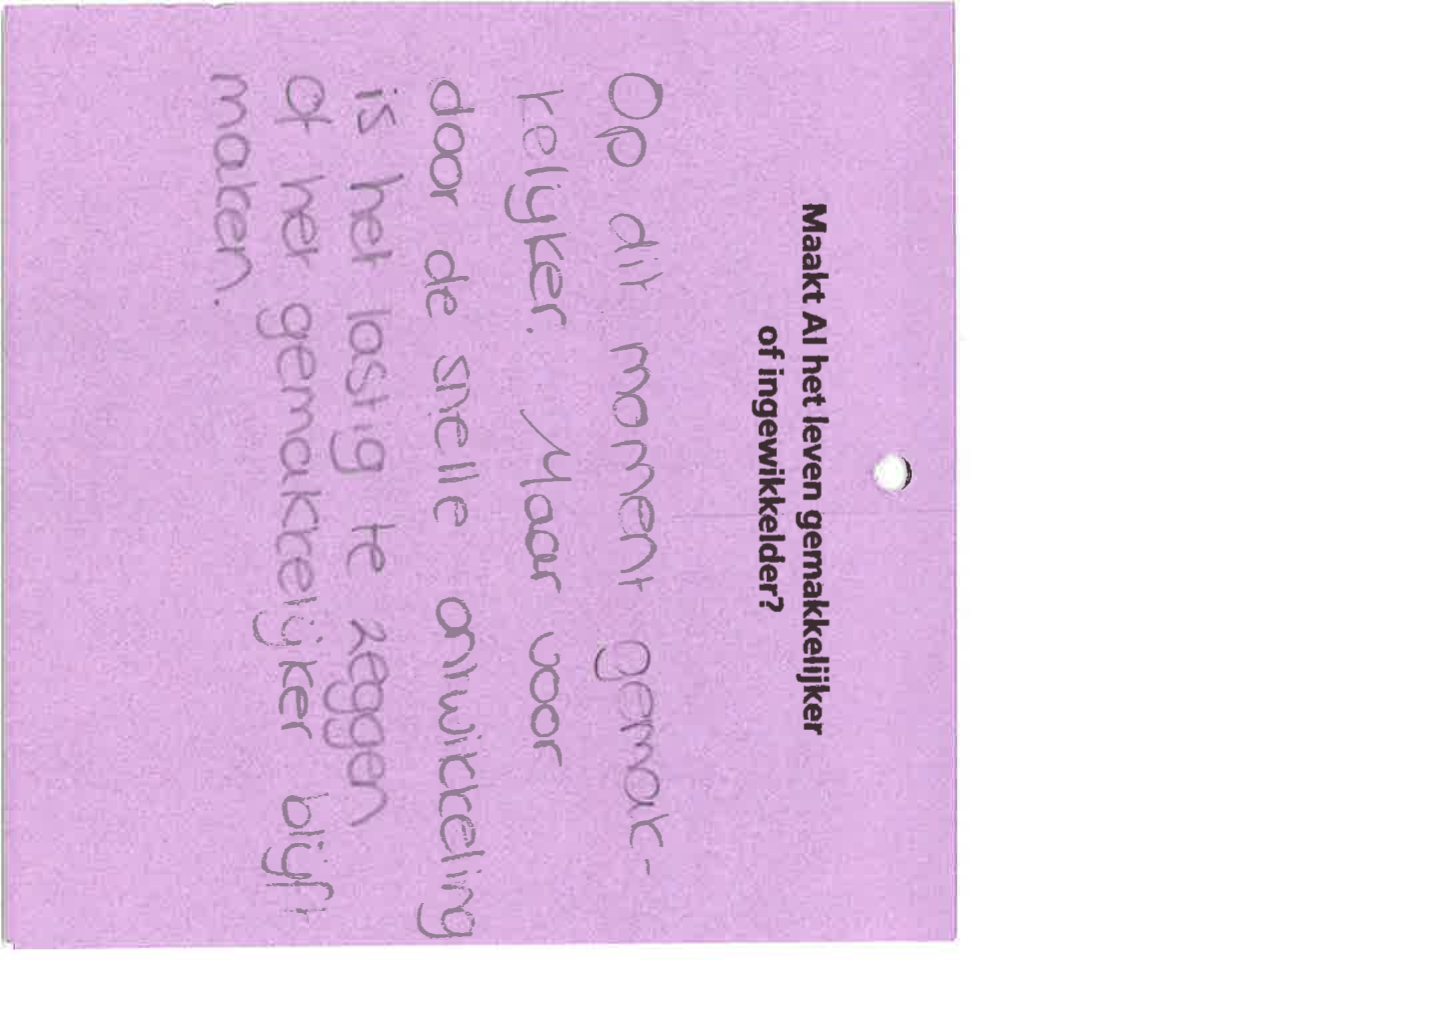 Maakt AI het leven gemakkelijker
of ingewikkelder?
Op dit moment gemak-
kelijker. Maar voor
door de snelle ontwikkeling
is het lastig te zeggen
of het gemakkelijker blijft
maken.